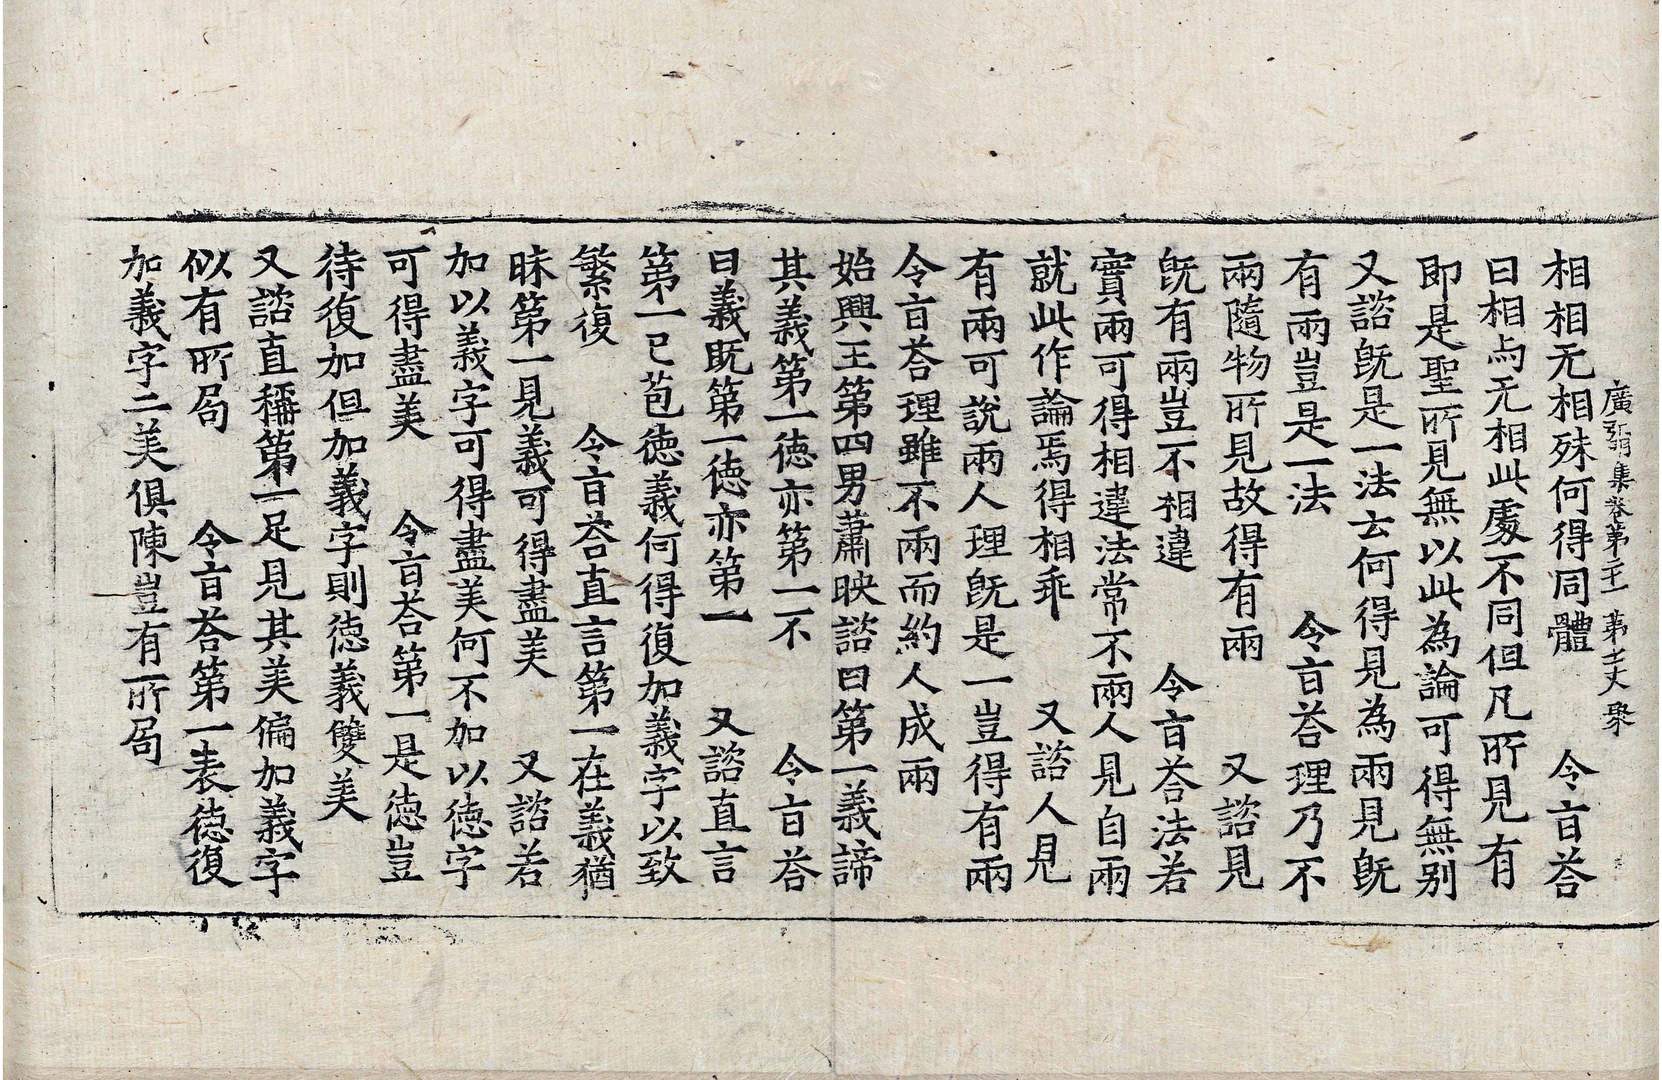 廣弘明集卷第二十一 第七丈 聚
相相无相殊何得同體 令旨荅
曰相与无相此處不同但凡所見有
即是聖所見無以此為論可得無别
又諮旣是一法云何得見為兩見旣
有兩豈是一法 令旨荅理乃不
兩隨物所見故得有兩 又諮見
旣有兩豈不相違 令旨荅法若
實兩可得相違法常不兩人見自兩
就此作論焉得相乖 又諮人見
有兩可說兩人理旣是一豈得有兩
令旨荅理雖不兩而約人成兩
始興王第四男蕭映諮曰第一義諦
其義第一徳亦第一不 令旨荅
曰義既第一徳亦第一 又諮直言
第一已苞徳義何得復加義字以致
繁復 令旨荅直言第一在義猶
昧第一見義可得盡美 又諮若
加以義字可得盡美何不加以徳字
可得盡美 令旨荅第一是徳豈
待復加但加義字則徳義雙美
又諮直稱第一足見其美偏加義字
似有所局 令旨荅第一表徳復
加義字二美俱陳豈有所局